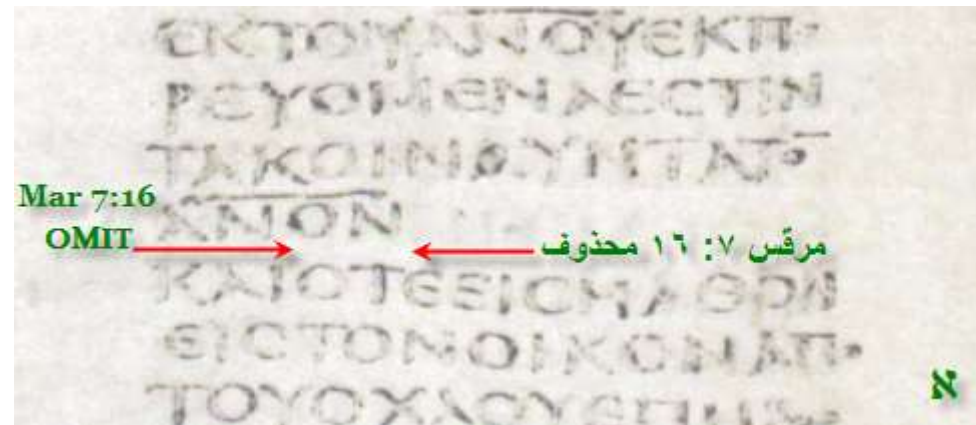 ΕΚΤΟΥΑΝΟΥΕΚΠ
ΡΕΥΟΜΕΝΑΕCΤΙΝ
ΤΑΚΟΙΝΟΥΝΤΑΤ
Mar 7:16
ΑΝΟΝ
OMIT
مرقس ٧: ١٦ محذوف
ΚΑΙΟΤΕΕΙCΗΛΘΟΝ
ΕΙCΤΟΝΟΙΚΟΝΑΠ
א
ΤΟΥΟΧΛΟΥΕΠΗ